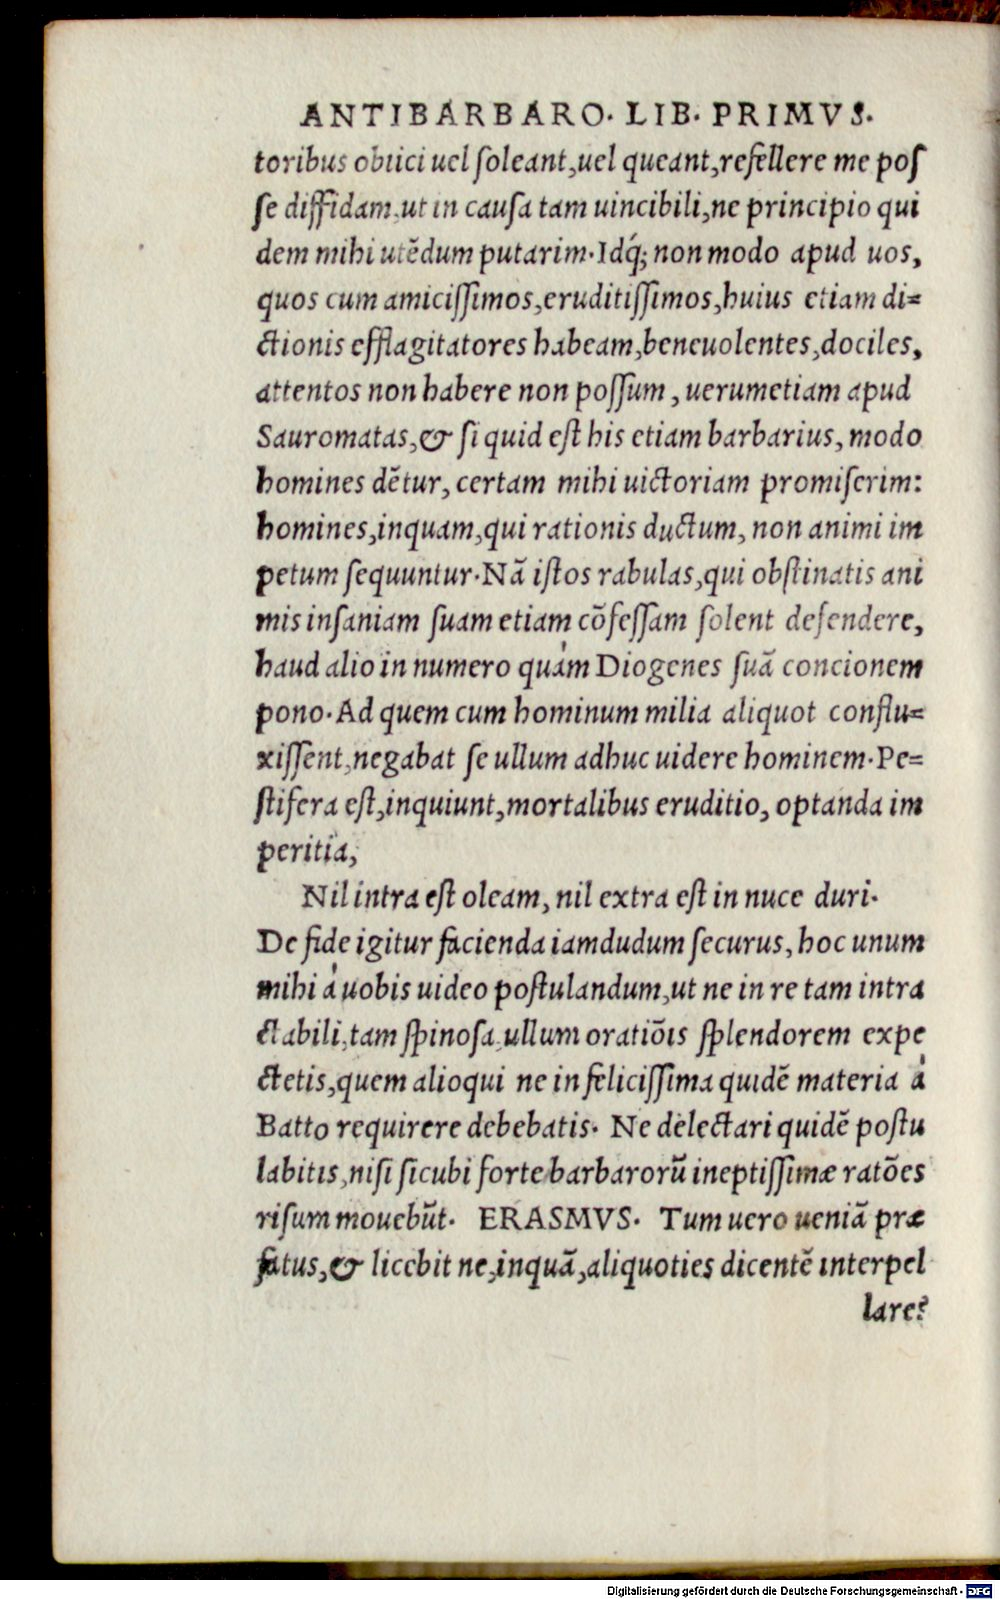 ANTIBARBARO. LIB. PRIMVS.
toribus obiici uel ſoleant,uel queant,refellere me poſ
ſe diffidam,ut in cauſa tam uincibili,ne principio qui
dem mihi utẽdum putarim.Idq́; non modo apud uos,
quos cum amiciſſimos,eruditiſſimos,huius etiam di=
ctionis efflagitatores habeam,beneuolentes,dociles,
attentos non habere non poſſum, uerumetiam apud
Sauromatas,& ſi quid eſt his etiam barbarius, modo
homines dẽtur, certam mihi uictoriam promiſerim:
homines,inquam,qui rationis ductum, non animi im
petum ſequuntur.Nã iſtos rabulas,qui obſtinatis ani
mis inſaniam ſuam etiam cõfeſſam ſolent defendere,
haud alio in numero quàm Diogenes ſuã concionem
pono.Ad quem cum hominum milia aliquot conflu=
xiſſent,negabat ſe ullum adhuc uidere hominem.Pe=
ſtifera eſt,inquiunt,mortalibus eruditio, optanda im
peritia,
Nil intra eſt oleam, nil extra eſt in nuce duri.
De fide igitur facienda iamdudum ſecurus, hoc unum
mihi à uobis uideo poſtulandum,ut ne in re tam intra
ctabili,tam ſpinoſa,ullum oratiõis ſplendorem expe
ctetis,quem alioqui ne in feliciſſima quidẽ materia à
Batto requirere debebatis. Ne delectari quidẽ poſtu
labitis,niſi ſicubi forte barbarorũ ineptiſſimæ ratões
riſum mouebũt. ERASMVS. Tum uero ueniã præ
fatus,& licebit ne,inquã,aliquoties dicentẽ interpel
lare?
Digitalisierung gefördert durch die Deutsche Forschungsgemeinschaft - DFG